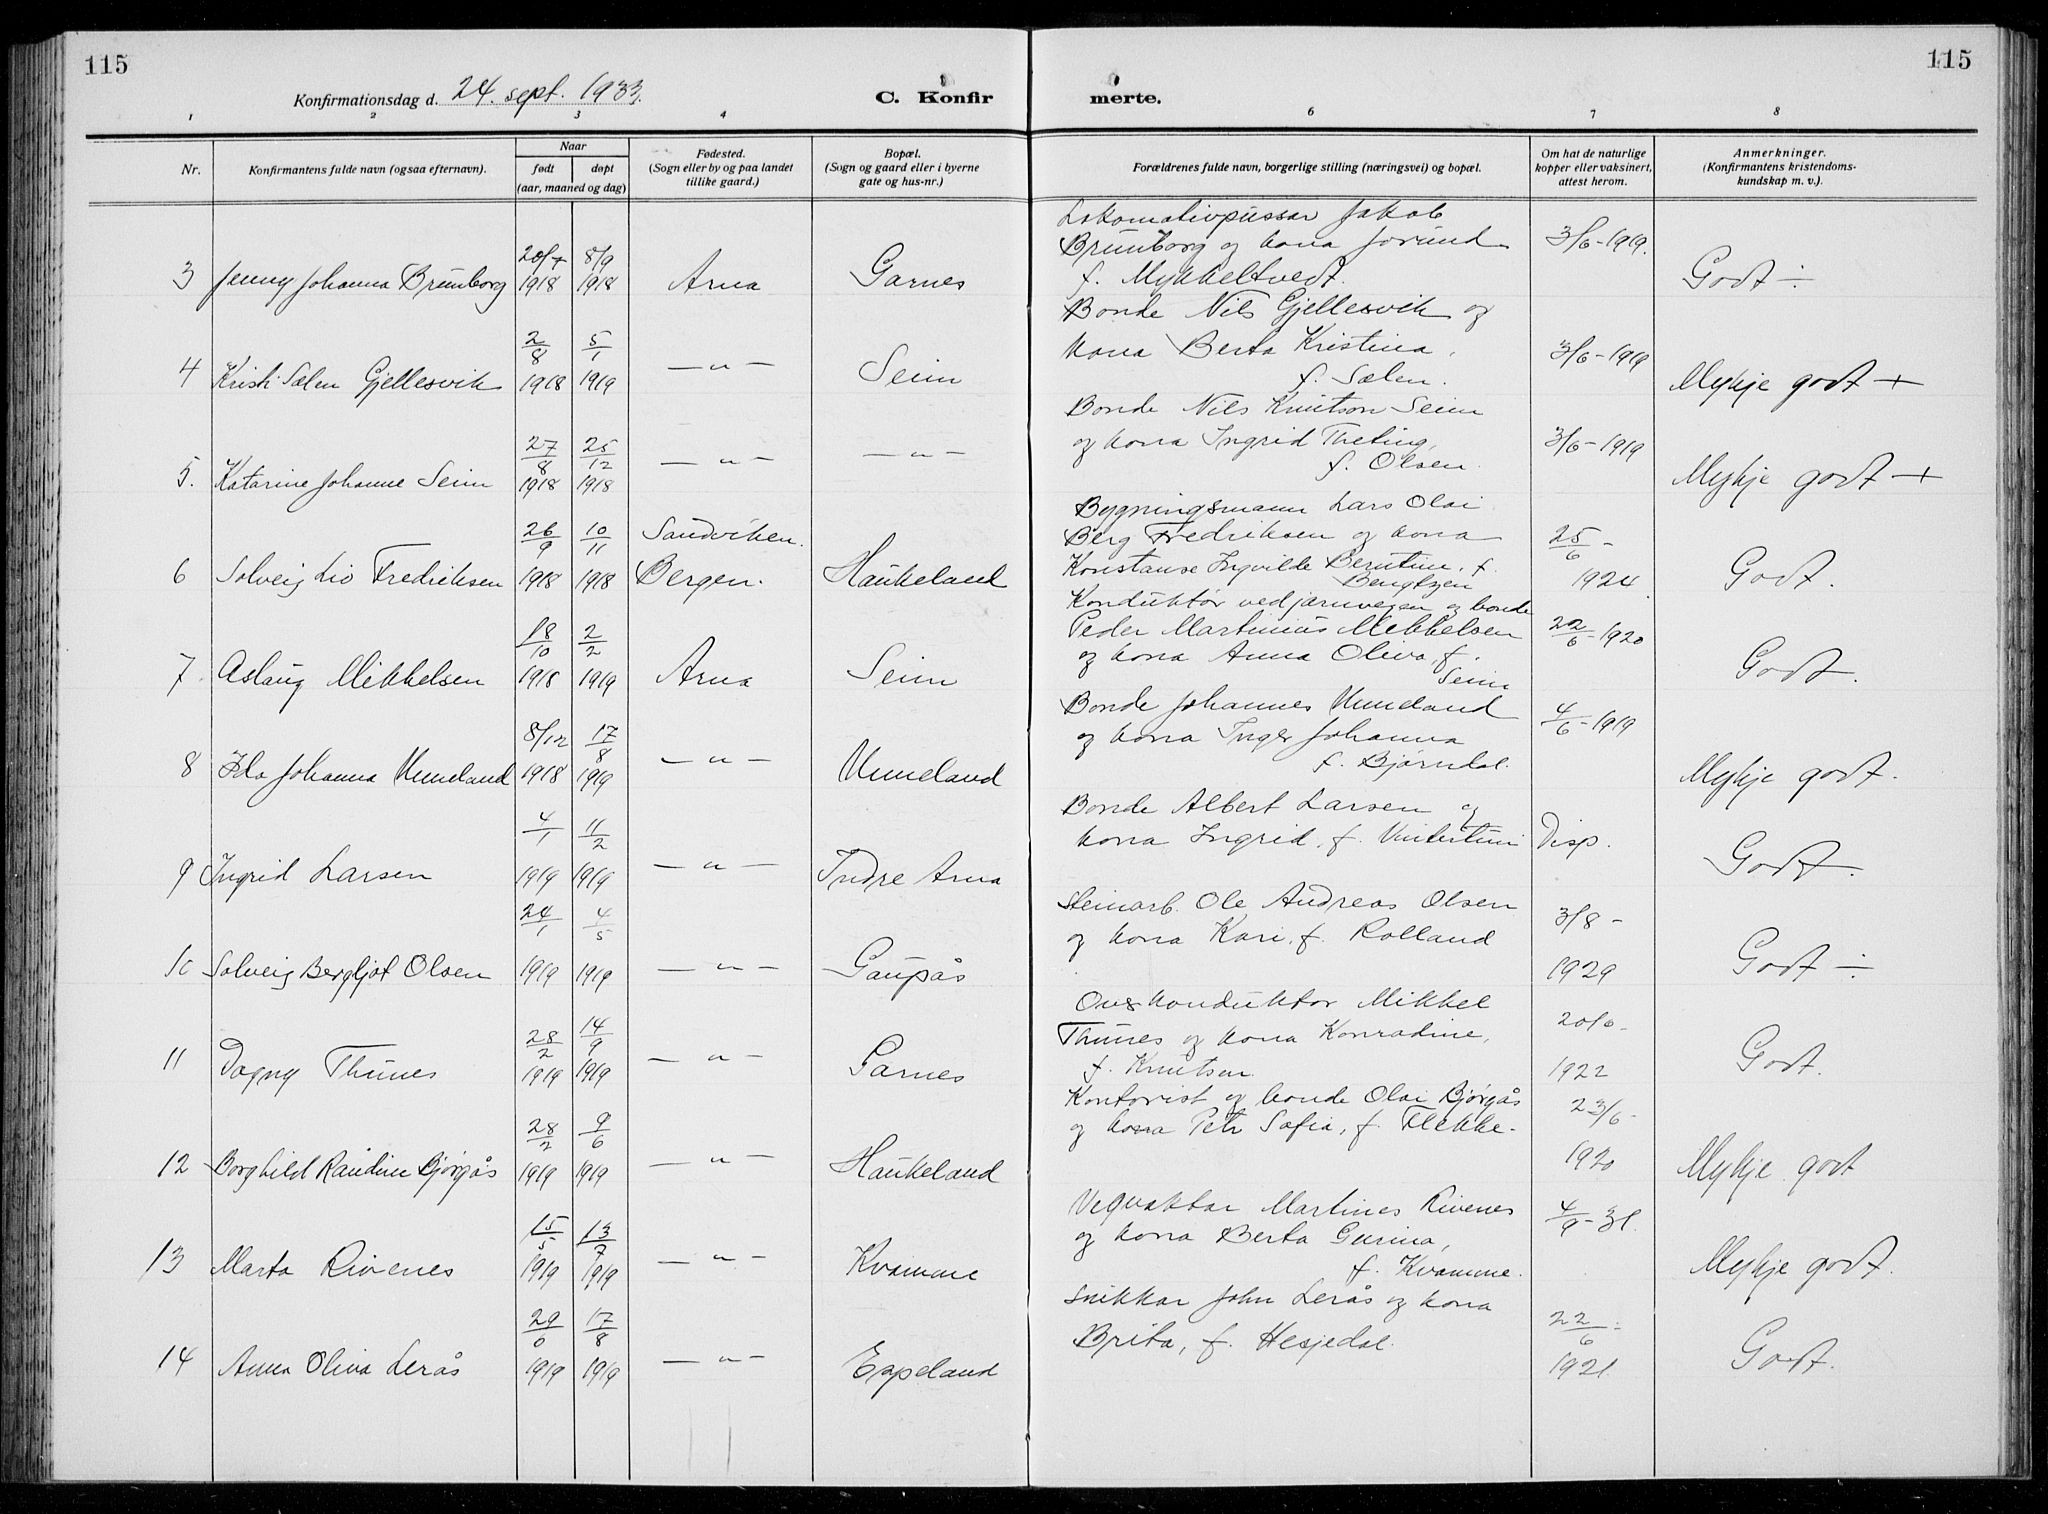 115
115
Konfirmationsdag d. 24. sept. 1933.
C. Konfir
merte.
1 2 3 4 6 7 8
Nr.
Konfirmantens fulde navn (ogsaa efternavn).
Naar
født døpt
(aar, maaned og dag)
Fødested.
(Sogn eller by og paa landet
tillike gaard.)
Bopæl.
(Sogn og gaard eller i byerne
gate og hus-nr.)
Forældrenes fulde navn, borgerlige stilling (næringsvei) og bopæl.
Om hat de naturlige
kopper eller vaksinert,
attest herom.
Anmerkninger.
(Konfirmantens kristendoms-
kundskap m. v.).
Lokomativpussar Jakob
20/7 8/9 Brunborg og kona Jorund 3/6-1919.
3 Jenny Johanna Brunborg 1918 1918 Arna Garnes f. Mykkeltvedt. Godt ÷
Bonde Nils Gjellesvik og
2/8 5/1 kona Berta Kristina, 3/6-1919
4 Krist. Sælen Gjellesvik 1918 1919 — „ — Seim f. Sælen. Mykje godt +
Bonde Nils Knutson Seim
27/8 25/12 og kona Ingrid Theting, 3/6-1919
5. Katarine Johanne Seim 1918 1918 — „ — — „ — f. Olsen. Mykje godt +
Bygningsmann Lars Olai
26/9 10/11 Sandviken. Berg Fredriksen og kona 25/6 -
6 Solveig Liv Fredriksen 1918 1918 Bergen. Haukeland Konstanse Ingvilde Berntine, f. 1924. Godt.
Bengtzen
Konduktør ved jarnvegen og bonde
18/10 2/2 Peder Martinius Mikkelsen 22/6-1920
7. Aslaug Mikkelsen 1918 1919 Arna Seim og kona Anna Oliva, f. Godt.
Seim
Bonde Johannes Unneland 4/6-1919
8/12 17/8 og kona Inger Johanna
8 Ida Johanna Unneland 1918 1919 — „ — Unneland f. Bjørndal. Mykje godt.
Bonde Albert Larsen og
4/1 11/2 kona Ingrid, f. Vintertun Disp.
9 Ingrid Larsen 1919 1919 — „ — Indre Arna Godt.
24/1 4/5 Steinarb. Ole Andreas Olsen 3/8 -
og kona Kari, f. Rolland
10 Solveig Bergljot Olsen 1919 1919 — „ — Gaupås 1929 Godt ÷
Overkonduktør Mikkel
28/2 14/9 Thunes og kona Konradine, 20/6-
11 Dagny Thunes 1919 1919 — „ — Garnes f. Knutsen. 1922 Godt.
Kontorist og bonde Olai Bjørgås
28/2 9/6 og kona Petr. Sofia, f. Flekke. 23/6-
12 Borghild Raudine Bjørgås 1919 1919 — „ — Haukeland 1920 Mykje godt
Vegvaktar Martines Rivenes
15/5 13/7 og kona Berta Gurina, 4/9-31.
13 Marta Rivenes 1919 1919 — „ — Kvamme f. Kvamme. Mykje godt.
Snikkar John Lerås og kona
29/6 17/8 Brita, f. Hesjedal. 22/6-
14 Anna Oliva Lerås 1919 1919 — „ — Espeland 1921. Godt.